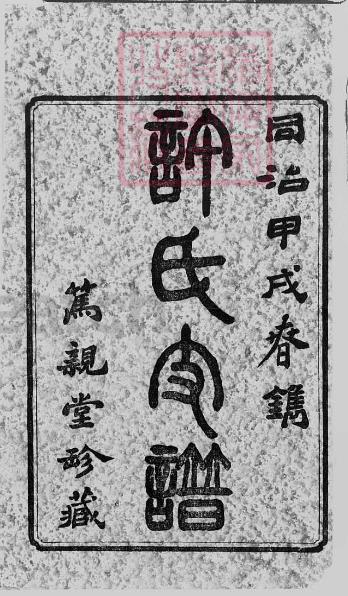 同治甲戌春鐫
許氏支譜
篤親堂珍藏